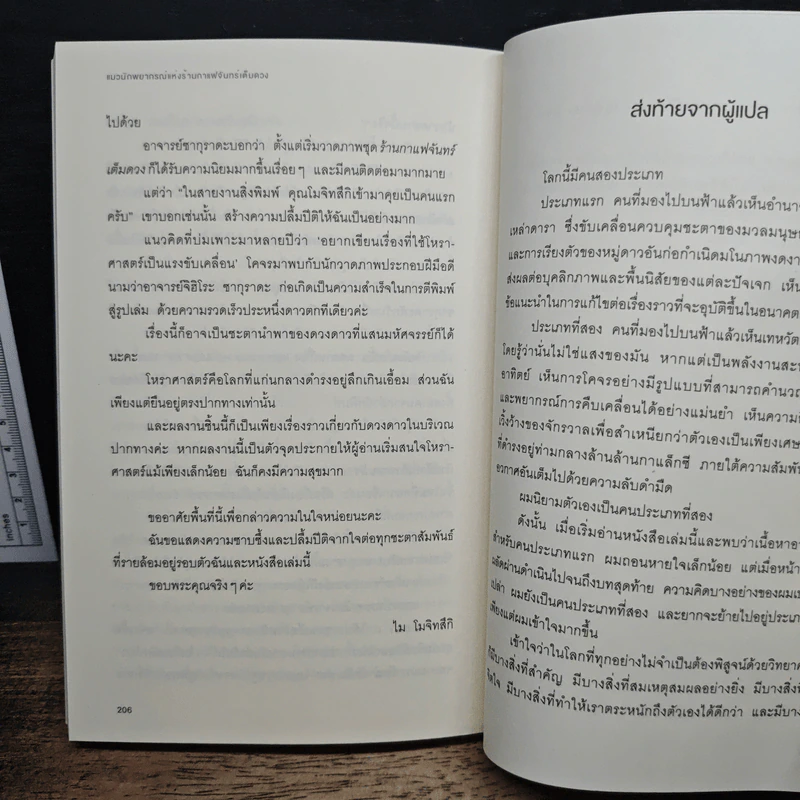 แมวนักพยากรณ์แห่งร้านกาแฟจันทร์เต็มดวง
ไปด้วย
อาจารย์ซากุราดะบอกว่า ตั้งแต่เริ่มวาดภาพชุด ร้านกาแฟจันทร์
เต็มดวง ก็ได้รับความนิยมมากขึ้นเรื่อยๆ และมีคนติดต่อมามากมาย
แต่ว่า “ในสายงานสิ่งพิมพ์ คุณโมจิทสึกิเข้ามาคุยเป็นคนแรก
ครับ” เขาบอกเช่นนั้น สร้างความปลื้มปีติให้ฉันเป็นอย่างมาก
แนวคิดที่บ่มเพาะมาหลายปีว่า ‘อยากเขียนเรื่องที่ใช้โหรา-
ศาสตร์เป็นแรงขับเคลื่อน’ โคจรมาพบกับนักวาดภาพประกอบฝีมือดี
นามว่าอาจารย์จิฮิโระ ซากุราดะ ก่อเกิดเป็นความสำเร็จในการตีพิมพ์
สู่รูปเล่ม ด้วยความรวดเร็วประหนึ่งดาวตกทีเดียวค่ะ
เรื่องนี้ก็อาจเป็นชะตานำพาของดวงดาวที่แสนมหัศจรรย์ก็ได้
นะคะ
โหราศาสตร์คือโลกที่แก่นกลางดำรงอยู่ลึกเกินเอื้อม ส่วนฉัน
เพียงแต่ยืนอยู่ตรงปากทางเท่านั้น
และผลงานชิ้นนี้ก็เป็นเพียงเรื่องราวเกี่ยวกับดวงดาวในบริเวณ
ปากทางค่ะ หากผลงานนี้เป็นตัวจุดประกายให้ผู้อ่านเริ่มสนใจโหรา-
ศาสตร์แม้เพียงเล็กน้อย ฉันก็คงมีความสุขมาก
ขออาศัยพื้นที่นี้เพื่อกล่าวความในใจหน่อยนะคะ
ฉันขอแสดงความซาบซึ้งและปลื้มปีติจากใจต่อทุกชะตาสัมพันธ์
ที่รายล้อมอยู่รอบตัวฉันและหนังสือเล่มนี้
ขอบพระคุณจริงๆ ค่ะ
ไม โมจิทสึกิ
206
ส่งท้ายจากผู้แปล
โลกนี้มีคนสองประเภท
ประเภทแรก คนที่มองไปบนฟ้าแล้วเห็นอำนา
เหล่าดารา ซึ่งขับเคลื่อนควบคุมชะตาของมวลมนุษ
และการเรียงตัวของหมู่ดาวอันก่อกำเนิดมโนภาพงดงา
ส่งผลต่อบุคลิกภาพและพื้นนิสัยของแต่ละปัจเจก เห็น
ข้อแนะนำในการแก้ไขต่อเรื่องราวที่จะอุบัติขึ้นในอนาคต
ประเภทที่สอง คนที่มองไปบนฟ้าแล้วเห็นเทหวัต
โดยรู้ว่านั่นไม่ใช่แสงของมัน หากแต่เป็นพลังงานสะท
อาทิตย์ เห็นการโคจรอย่างมีรูปแบบที่สามารถคำนวณ
และพยากรณ์การคืบเคลื่อนได้อย่างแม่นยำ เห็นความเ
เวิ้งว้างของจักรวาลเพื่อสำเหนียกว่าตัวเองเป็นเพียงเศษ
ที่ดำรงอยู่ท่ามกลางล้านล้านกาแล็กซี ภายใต้ความสัมพัน
อวกาศอันเต็มไปด้วยความลับดำมืด
ผมนิยามตัวเองเป็นคนประเภทที่สอง
ดังนั้น เมื่อเริ่มอ่านหนังสือเล่มนี้และพบว่าเนื้อหาอา
สำหรับคนประเภทแรก ผมถอนหายใจเล็กน้อย แต่เมื่อหน้า
ผลัดผ่านดำเนินไปจนถึงบทสุดท้าย ความคิดบางอย่างของผมเป
เปล่า ผมยังเป็นคนประเภทที่สอง และยากจะย้ายไปอยู่ประเภ
เพียงแต่ผมเข้าใจมากขึ้น
เข้าใจว่าในโลกที่ทุกอย่างไม่จำเป็นต้องพิสูจน์ด้วยวิทยาศ
ก็มีบางสิ่งที่สำคัญ มีบางสิ่งที่สมเหตุสมผลอย่างยิ่ง มีบางสิ่งที่
จิตใจ มีบางสิ่งที่ทำให้เราตระหนักถึงตัวเองได้ดีกว่า และมีบาง
Inches
1
2
3